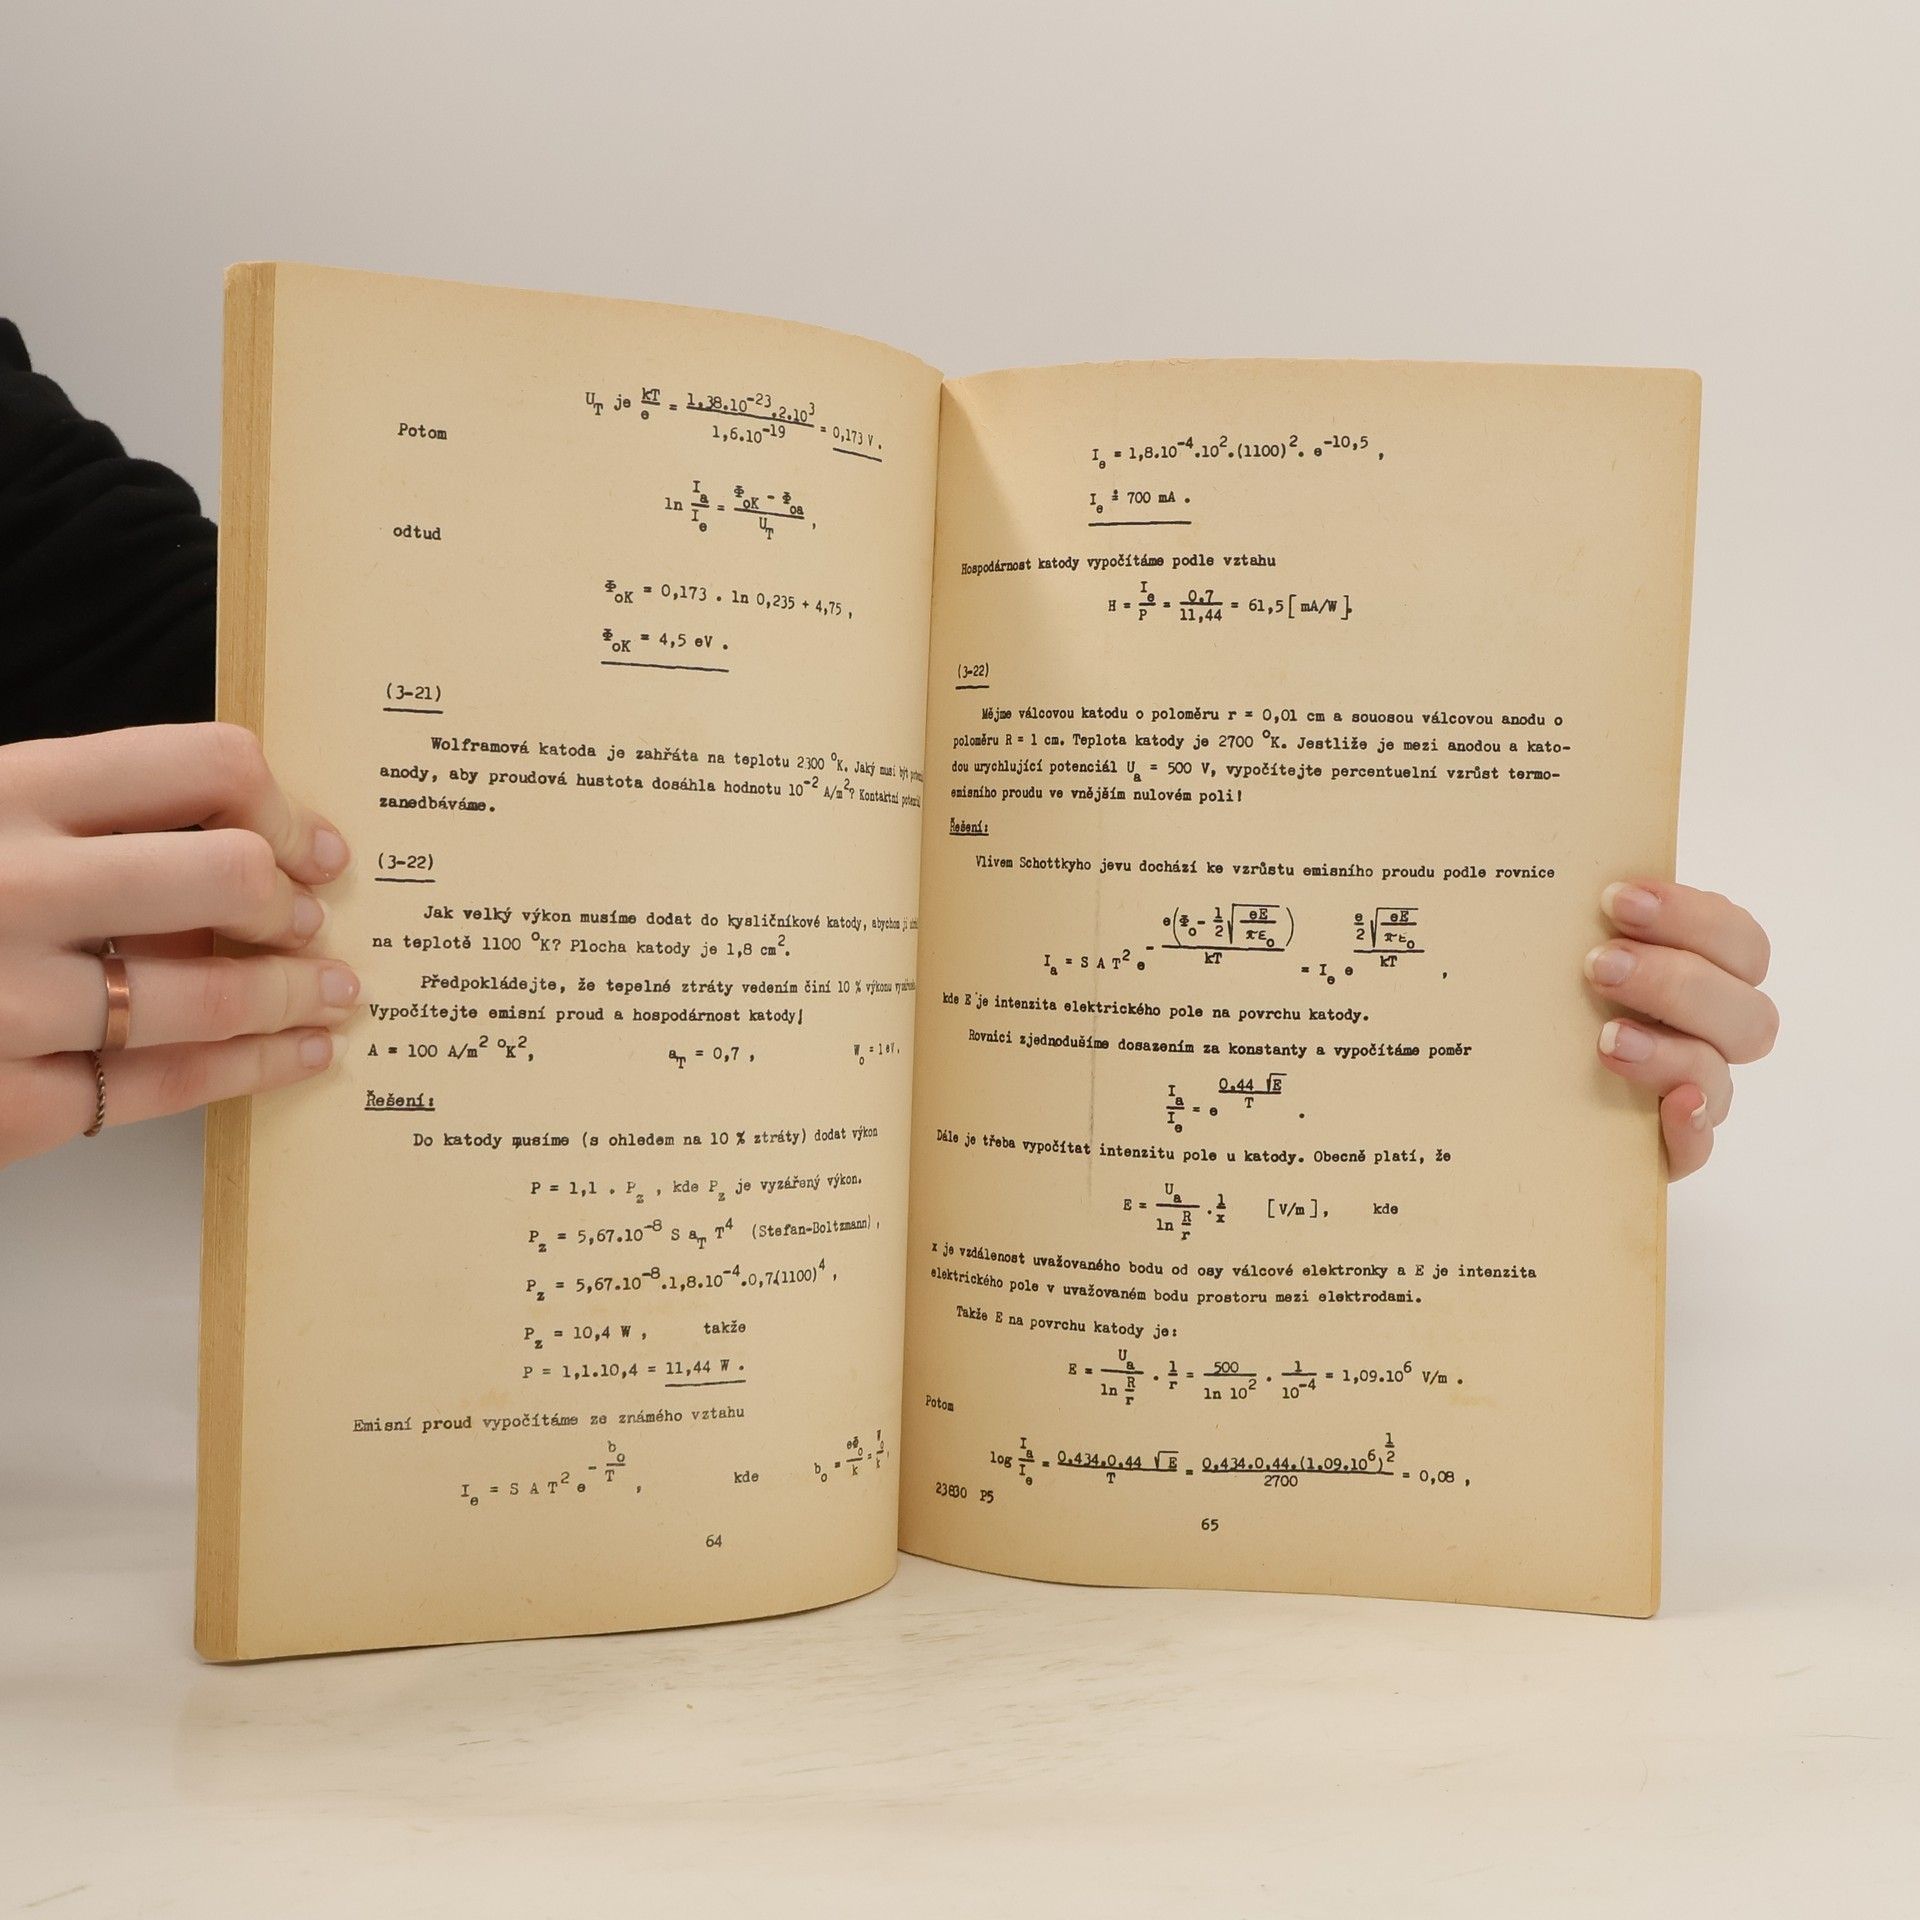 U_T je kT/e = 1,38.10^-23.2.10^3 / 1,6.10^-19 = 0,173 V.
Potom
ln I_a/I_e = Φ_oK - Φ_oa / U_T ,
odtud
Φ_oK = 0,173 . ln 0,235 + 4,75 ,
Φ_oK = 4,5 eV .
(3-21)
Wolframová katoda je zahřáta na teplotu 2300 °K. Jaký musí být
anody, aby proudová hustota dosáhla hodnotu 10^-2 A/m^2? Kontaktní
zanedbáváme.
(3-22)
Jak velký výkon musíme dodat do kysličníkové katody, abychom ji
na teplotě 1100 °K? Plocha katody je 1,8 cm^2.
Předpokládejte, že tepelné ztráty vedením činí 10 % výkonu
Vypočítejte emisní proud a hospodárnost katody!
A = 100 A/m^2 °K^2, a_T = 0,7 , W_o = 1eV.
Řešení:
Do katody musíme (s ohledem na 10 % ztráty) dodat výkon
P = 1,1 . P_z , kde P_z je vyzářený výkon.
P_z = 5,67.10^-8 S a_T T^4 (Stefan-Boltzmann),
P_z = 5,67.10^-8.1,8.10^-4.0,7.(1100)^4 ,
P_z = 10,4 W , takže
P = 1,1.10,4 = 11,44 W .
Emisní proud vypočítáme ze známého vztahu
I_e = S A T^2 e^(- b_o/T) , kde b_o = eΦ_o/k = W_o/k ,
64
I_e = 1,8.10^-4.10^2.(1100)^2. e^-10,5 ,
I_e ≐ 700 mA .
Hospodárnost katody vypočítáme podle vztahu
H = I_e/P = 0,7/11,44 = 61,5 [ mA/W ].
(3-22)
Mějme válcovou katodu o poloměru r = 0,01 cm a souosou válcovou anodu o
poloměru R = 1 cm. Teplota katody je 2700 °K. Jestliže je mezi anodou a kato-
dou urychlující potenciál U_a = 500 V, vypočítejte percentuelní vzrůst termo-
emisního proudu ve vnějším nulovém poli!
Řešení:
Vlivem Schottkyho jevu dochází ke vzrůstu emisního proudu podle rovnice
I_a = S A T^2 e^(- e(Φ_o - 1/2 √(eE/πε_o)) / kT) = I_e e^(e/2 √(eE/πε_o) / kT) ,
kde E je intenzita elektrického pole na povrchu katody.
Rovnici zjednodušíme dosazením za konstanty a vypočítáme poměr
I_a/I_e = e^(0,44 √E / T) .
Dále je třeba vypočítat intenzitu pole u katody. Obecně platí, že
E = U_a / ln R/r . 1/x [V/m], kde
x je vzdálenost uvažovaného bodu od osy válcové elektronky a E je intenzita
elektrického pole v uvažovaném bodu prostoru mezi elektrodami.
Takže E na povrchu katody je:
E = U_a / ln R/r . 1/r = 500 / ln 10^2 . 1 / 10^-4 = 1,09.10^6 V/m .
Potom
log I_a/I_e = 0,434.0,44 √E / T = 0,434.0,44.(1,09.10^6)^1/2 / 2700 = 0,08 ,
23830 P5
65